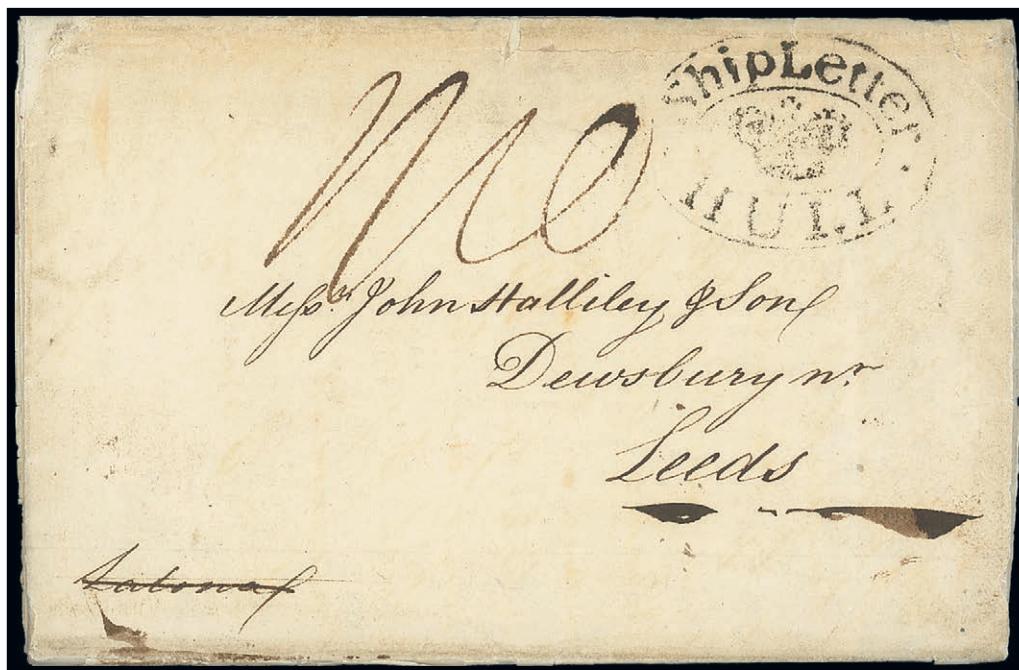 Ship Letter
HULL
Messrs. John Halliley & Son
Dewsbury nr.
Leeds